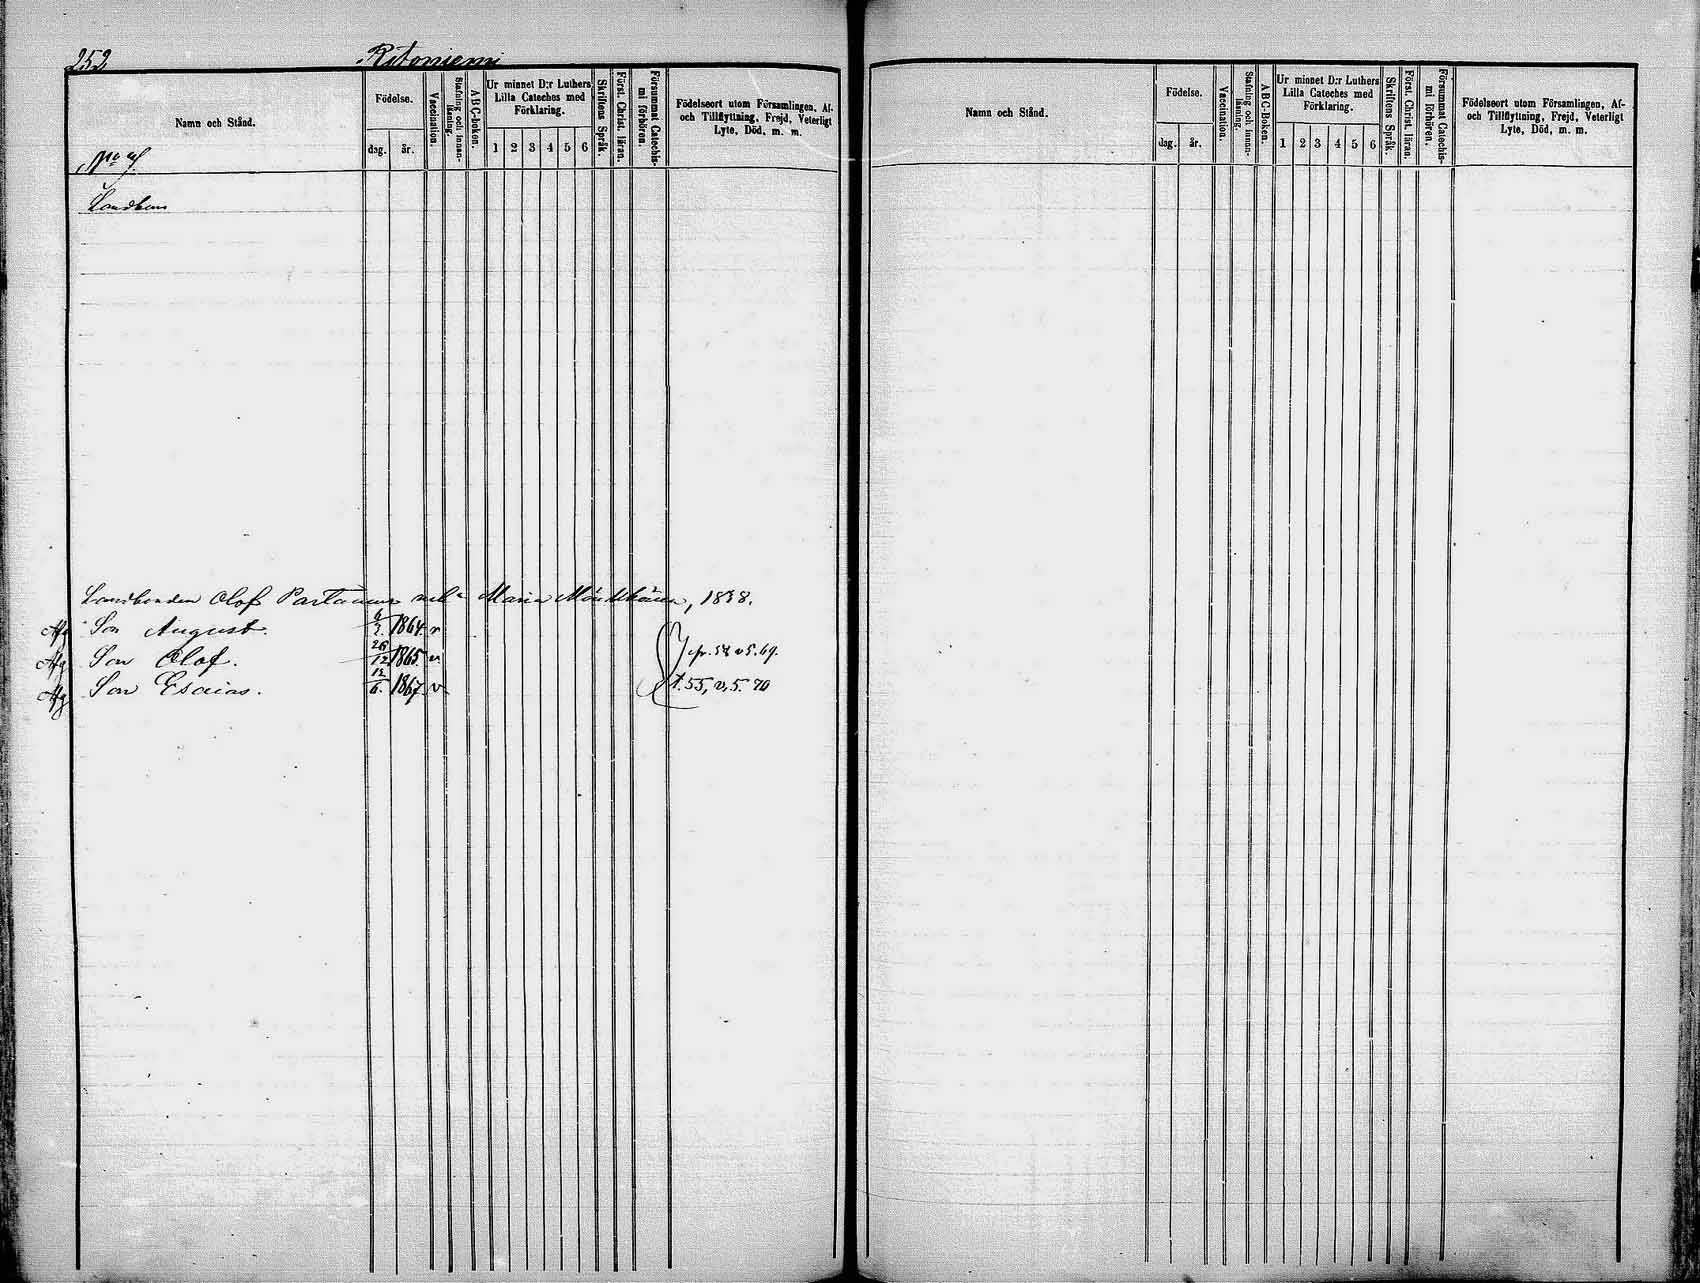 252 Ritoniemi
Namn och Stånd. Födelse. dag. år. Vaccination. Stafning och innanläsning. ABC-Boken. Ur minnet D:r Luthers Lilla Cateches med Förklaring. 1 2 3 4 5 6 Skriftens Språk. Först. Christ. läran. Försummat Catechismi förhören. Födelseort utom Församlingen, Af- och Tillflyttning, Frejd, Veterligt Lyte, Död, m. m.
No
Landbon
Landbonden Olof Partanens och Maria 1838.
Afg Son August. 6/2. 1864. v
Afg Son Olof. 26/12 1865. v 58 v 5. 69.
Afg Son Esaias. 12/6. 1867. v t. 55, v. 5. 70
Namn och Stånd. Födelse. dag. år. Vaccination. Stafning och innanläsning. ABC-Boken. Ur minnet D:r Luthers Lilla Cateches med Förklaring. 1 2 3 4 5 6 Skriftens Språk. Först. Christ. läran. Försummat Catechismi förhören. Födelseort utom Församlingen, Af- och Tillflyttning, Frejd, Veterligt Lyte, Död, m. m.